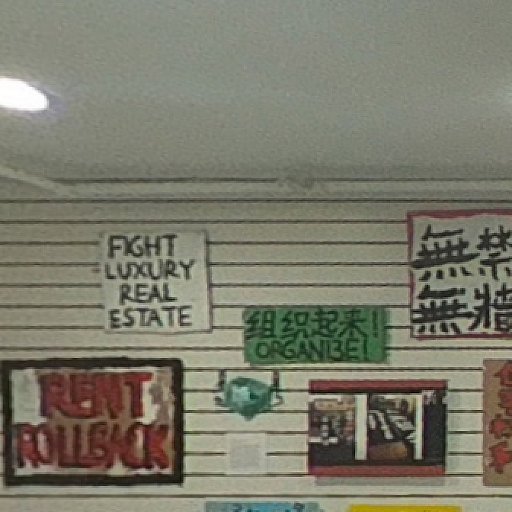 FIGHT
LUXURY
REAL
ESTATE
無禁
無牆
组织起来!
ORGANIZE!
RENT
ROLLBACK